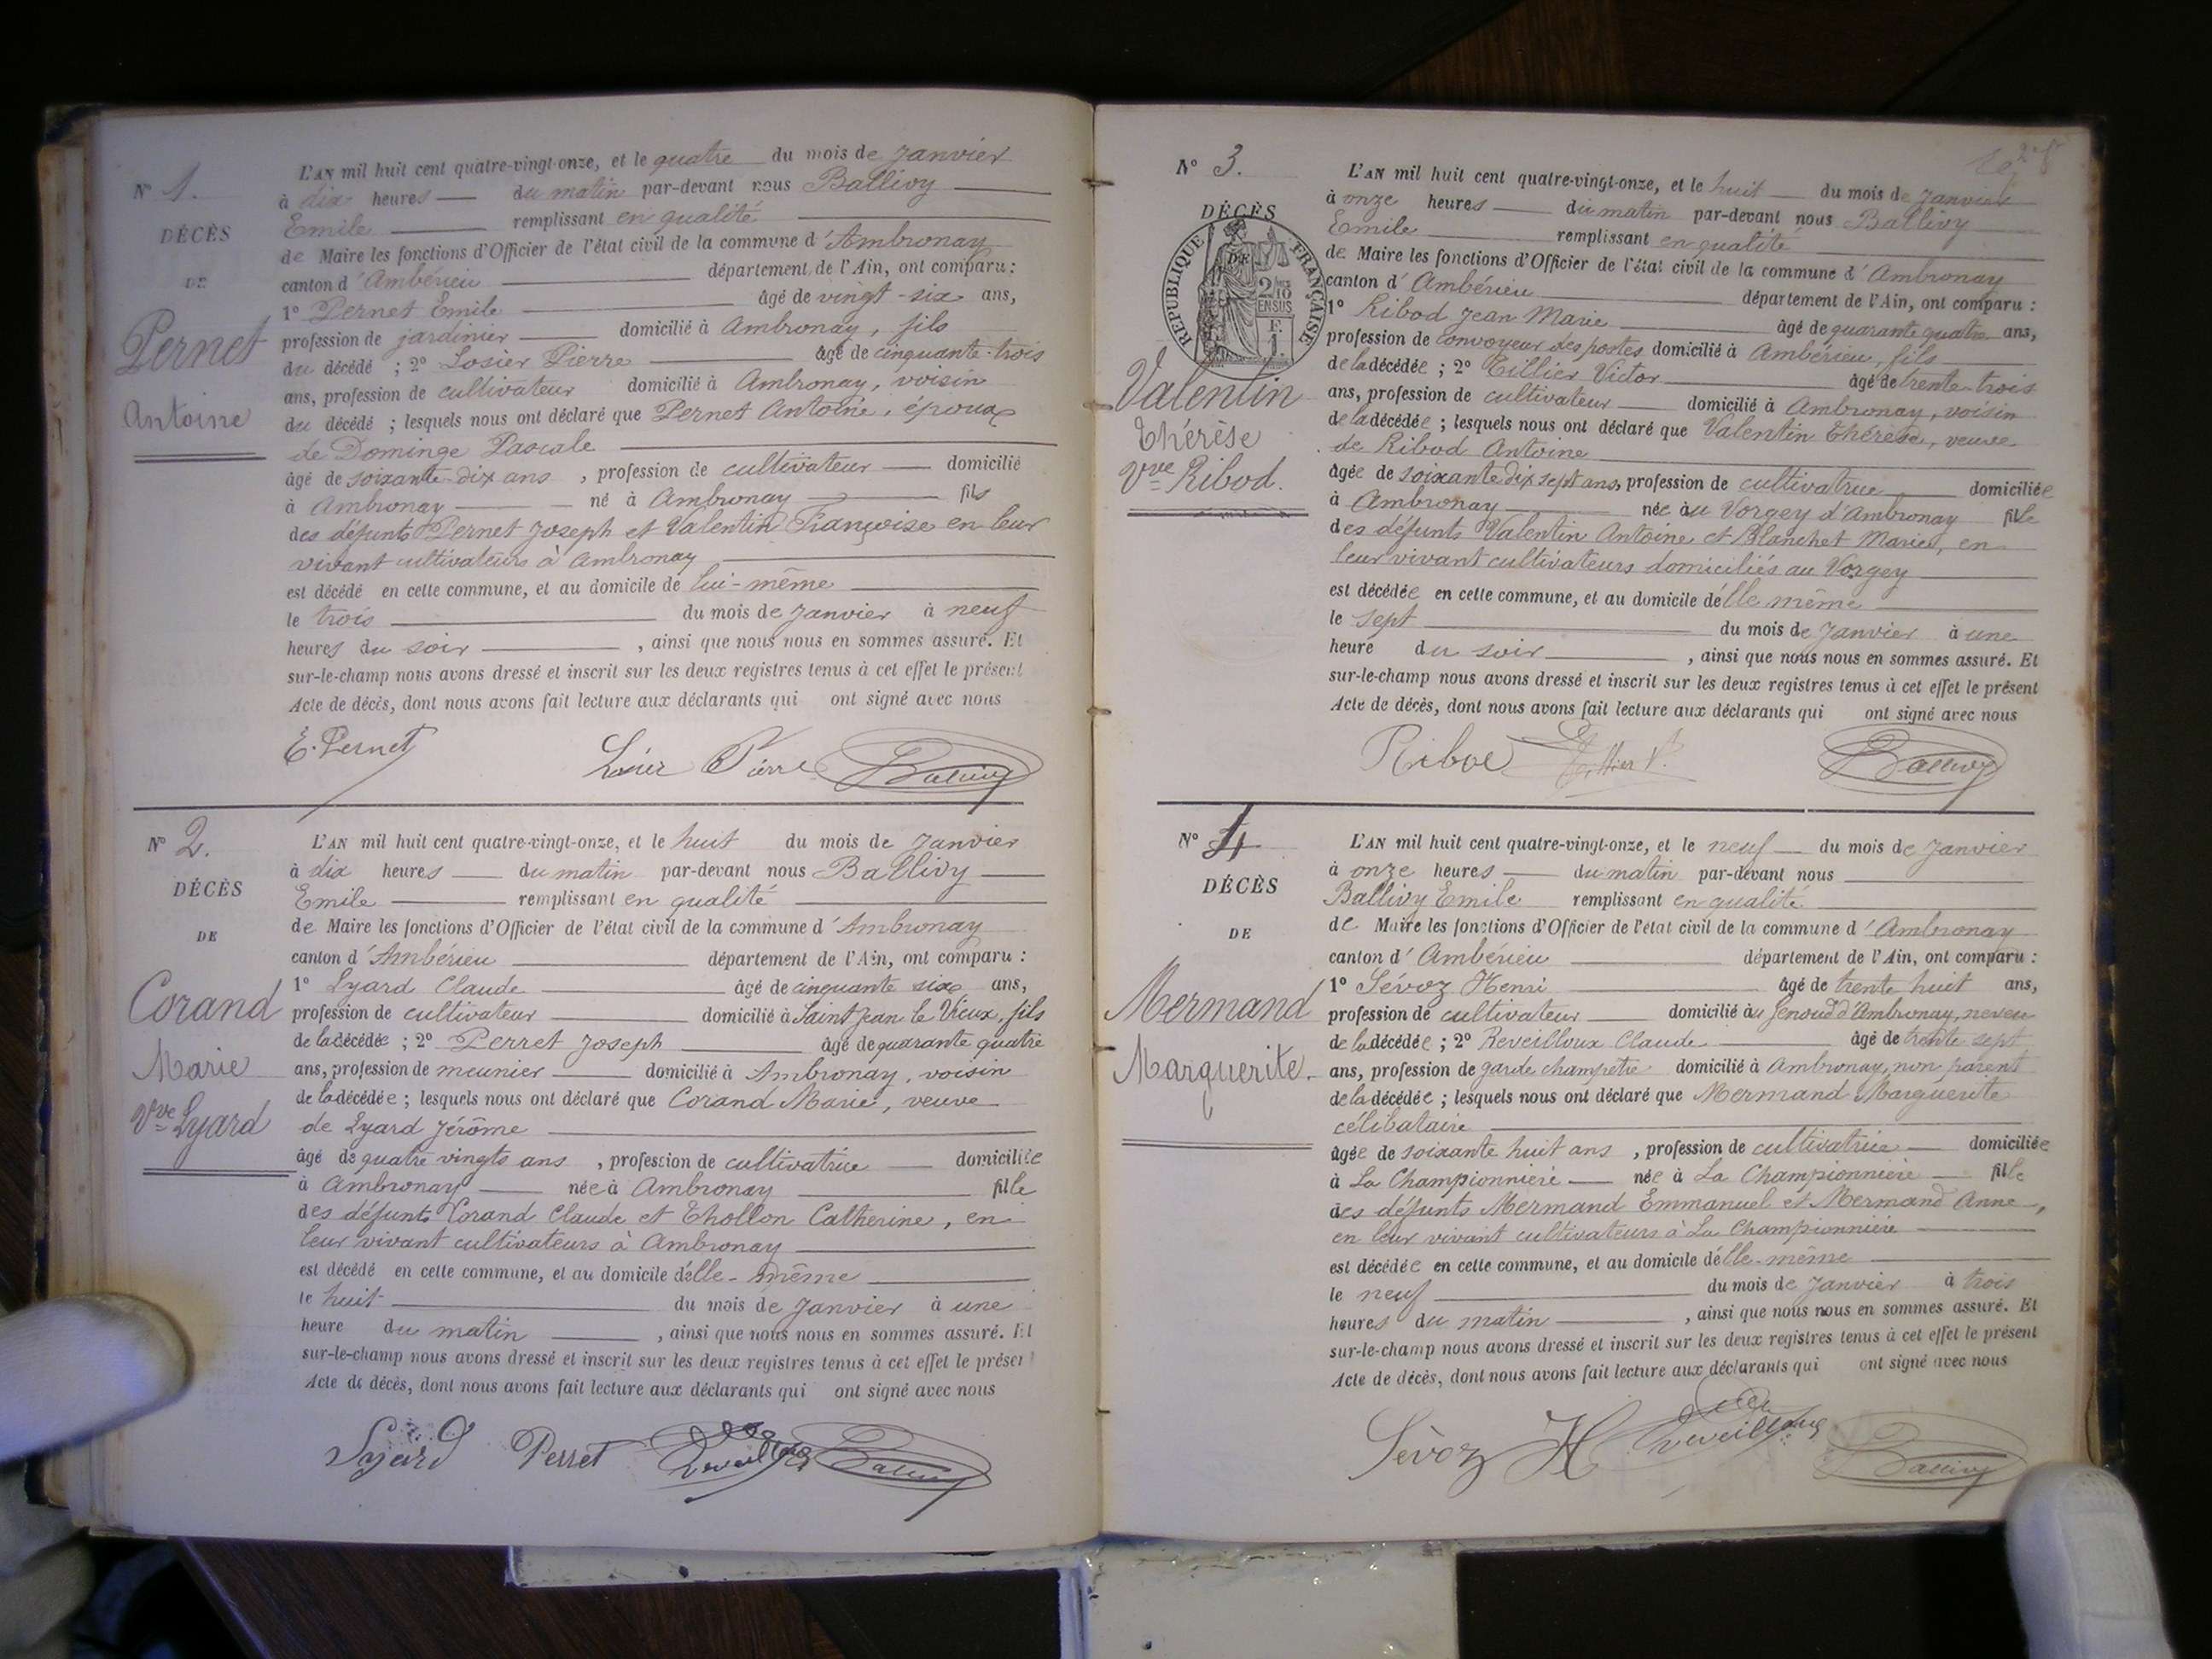 N° 1.
DÉCÈS
DE
Pernet
Antoine
L'AN mil huit cent quatre-vingt-onze, et le quatre du mois de Janvier
à dix heures du matin par-devant nous Ballivy
Emile remplissant en qualité
de Maire les fonctions d'Officier de l'état civil de la commune d'Ambronay
canton d'Ambérieu département de l'Ain, ont comparu :
1° Pernet Emile âgé de vingt-six ans,
profession de jardinier domicilié à Ambronay, fils
du décédé ; 2° Losier Pierre âgé de cinquante-trois
ans, profession de cultivateur domicilié à Ambronay, voisin
du décédé ; lesquels nous ont déclaré que Pernet Antoine, époux
de Dominge Pascale
âgé de soixante-dix ans, profession de cultivateur domicilié
à Ambronay né à Ambronay fils
des défunts Pernet Joseph et Valentin Françoise en leur
vivant cultivateurs à Ambronay
est décédé en cette commune, et au domicile de lui-même
le trois du mois de Janvier à neuf
heures du soir, ainsi que nous nous en sommes assuré. Et
sur-le-champ nous avons dressé et inscrit sur les deux registres tenus à cet effet le présent
Acte de décès, dont nous avons fait lecture aux déclarants qui ont signé avec nous
E. Pernet Losier Pierre Ballivy
N° 2.
DÉCÈS
DE
Corand
Marie
Vve Lyard
L'AN mil huit cent quatre-vingt-onze, et le huit du mois de Janvier
à dix heures du matin par-devant nous Ballivy
Emile remplissant en qualité
de Maire les fonctions d'Officier de l'état civil de la commune d'Ambronay
canton d'Ambérieu département de l'Ain, ont comparu :
1° Lyard Claude âgé de cinquante six ans,
profession de cultivateur domicilié à Saint Jean le Vieux, fils
de la décédée ; 2° Perret Joseph âgé de quarante quatre
ans, profession de meunier domicilié à Ambronay, voisin
de la décédée ; lesquels nous ont déclaré que Corand Marie, veuve
de Lyard Jérôme
âgé de quatre vingts ans, profession de cultivatrice domiciliée
à Ambronay née à Ambronay fille
des défunts Corand Claude et Thollon Catherine, en
leur vivant cultivateurs à Ambronay
est décédé en cette commune, et au domicile d'elle-même
le huit du mois de Janvier à une
heure du matin, ainsi que nous nous en sommes assuré. Et
sur-le-champ nous avons dressé et inscrit sur les deux registres tenus à cet effet le présent
Acte de décès, dont nous avons fait lecture aux déclarants qui ont signé avec nous
Lyard Perret Reveilloux Ballivy
N° 3.
DÉCÈS
DE
RÉPUBLIQUE FRANÇAISE
Valentin
Thérèse
Vve Ribod.
L'AN mil huit cent quatre-vingt-onze, et le huit du mois de Janvier
à onze heures du matin par-devant nous Ballivy
Emile remplissant en qualité
de Maire les fonctions d'Officier de l'état civil de la commune d'Ambronay
canton d'Ambérieu département de l'Ain, ont comparu :
1° Ribod Jean Marie âgé de quarante quatre ans,
profession de convoyeur des postes domicilié à Ambérieu, fils
de la décédée ; 2° Tillier Victor âgé de trente-trois
ans, profession de cultivateur domicilié à Ambronay, voisin
de la décédée ; lesquels nous ont déclaré que Valentin Thérèse, veuve
de Ribod Antoine
âgée de soixante dix sept ans, profession de cultivatrice domiciliée
à Ambronay née au Vorgey d'Ambronay fille
des défunts Valentin Antoine et Blanchet Marie, en
leur vivant cultivateurs domiciliés au Vorgey
est décédée en cette commune, et au domicile d'elle même
le sept du mois de Janvier à une
heure du soir, ainsi que nous nous en sommes assuré. Et
sur-le-champ nous avons dressé et inscrit sur les deux registres tenus à cet effet le présent
Acte de décès, dont nous avons fait lecture aux déclarants qui ont signé avec nous
Ribod Tillier V. Ballivy
N° 4
DÉCÈS
DE
Mermand
Marguerite.
L'AN mil huit cent quatre-vingt-onze, et le neuf du mois de Janvier
à onze heures du matin par-devant nous
Ballivy Emile remplissant en qualité
de Maire les fonctions d'Officier de l'état civil de la commune d'Ambronay
canton d'Ambérieu département de l'Ain, ont comparu :
1° Sévoz Henri âgé de trente huit ans,
profession de cultivateur domicilié au Genoud d'Ambronay, neveu
de la décédée ; 2° Reveilloux Claude âgé de trente sept
ans, profession de garde champetre domicilié à Ambronay, non parent
de la décédée ; lesquels nous ont déclaré que Mermand Marguerite
célibataire
âgée de soixante huit ans, profession de cultivatrice domiciliée
à La Championnière née à La Championnière fille
des défunts Mermand Emmanuel et Mermand Anne,
en leur vivant cultivateurs à La Championnière
est décédée en cette commune, et au domicile d'elle-même
le neuf du mois de Janvier à trois
heures du matin, ainsi que nous nous en sommes assuré. Et
sur-le-champ nous avons dressé et inscrit sur les deux registres tenus à cet effet le présent
Acte de décès, dont nous avons fait lecture aux déclarants qui ont signé avec nous
Sévoz H Reveilloux Ballivy